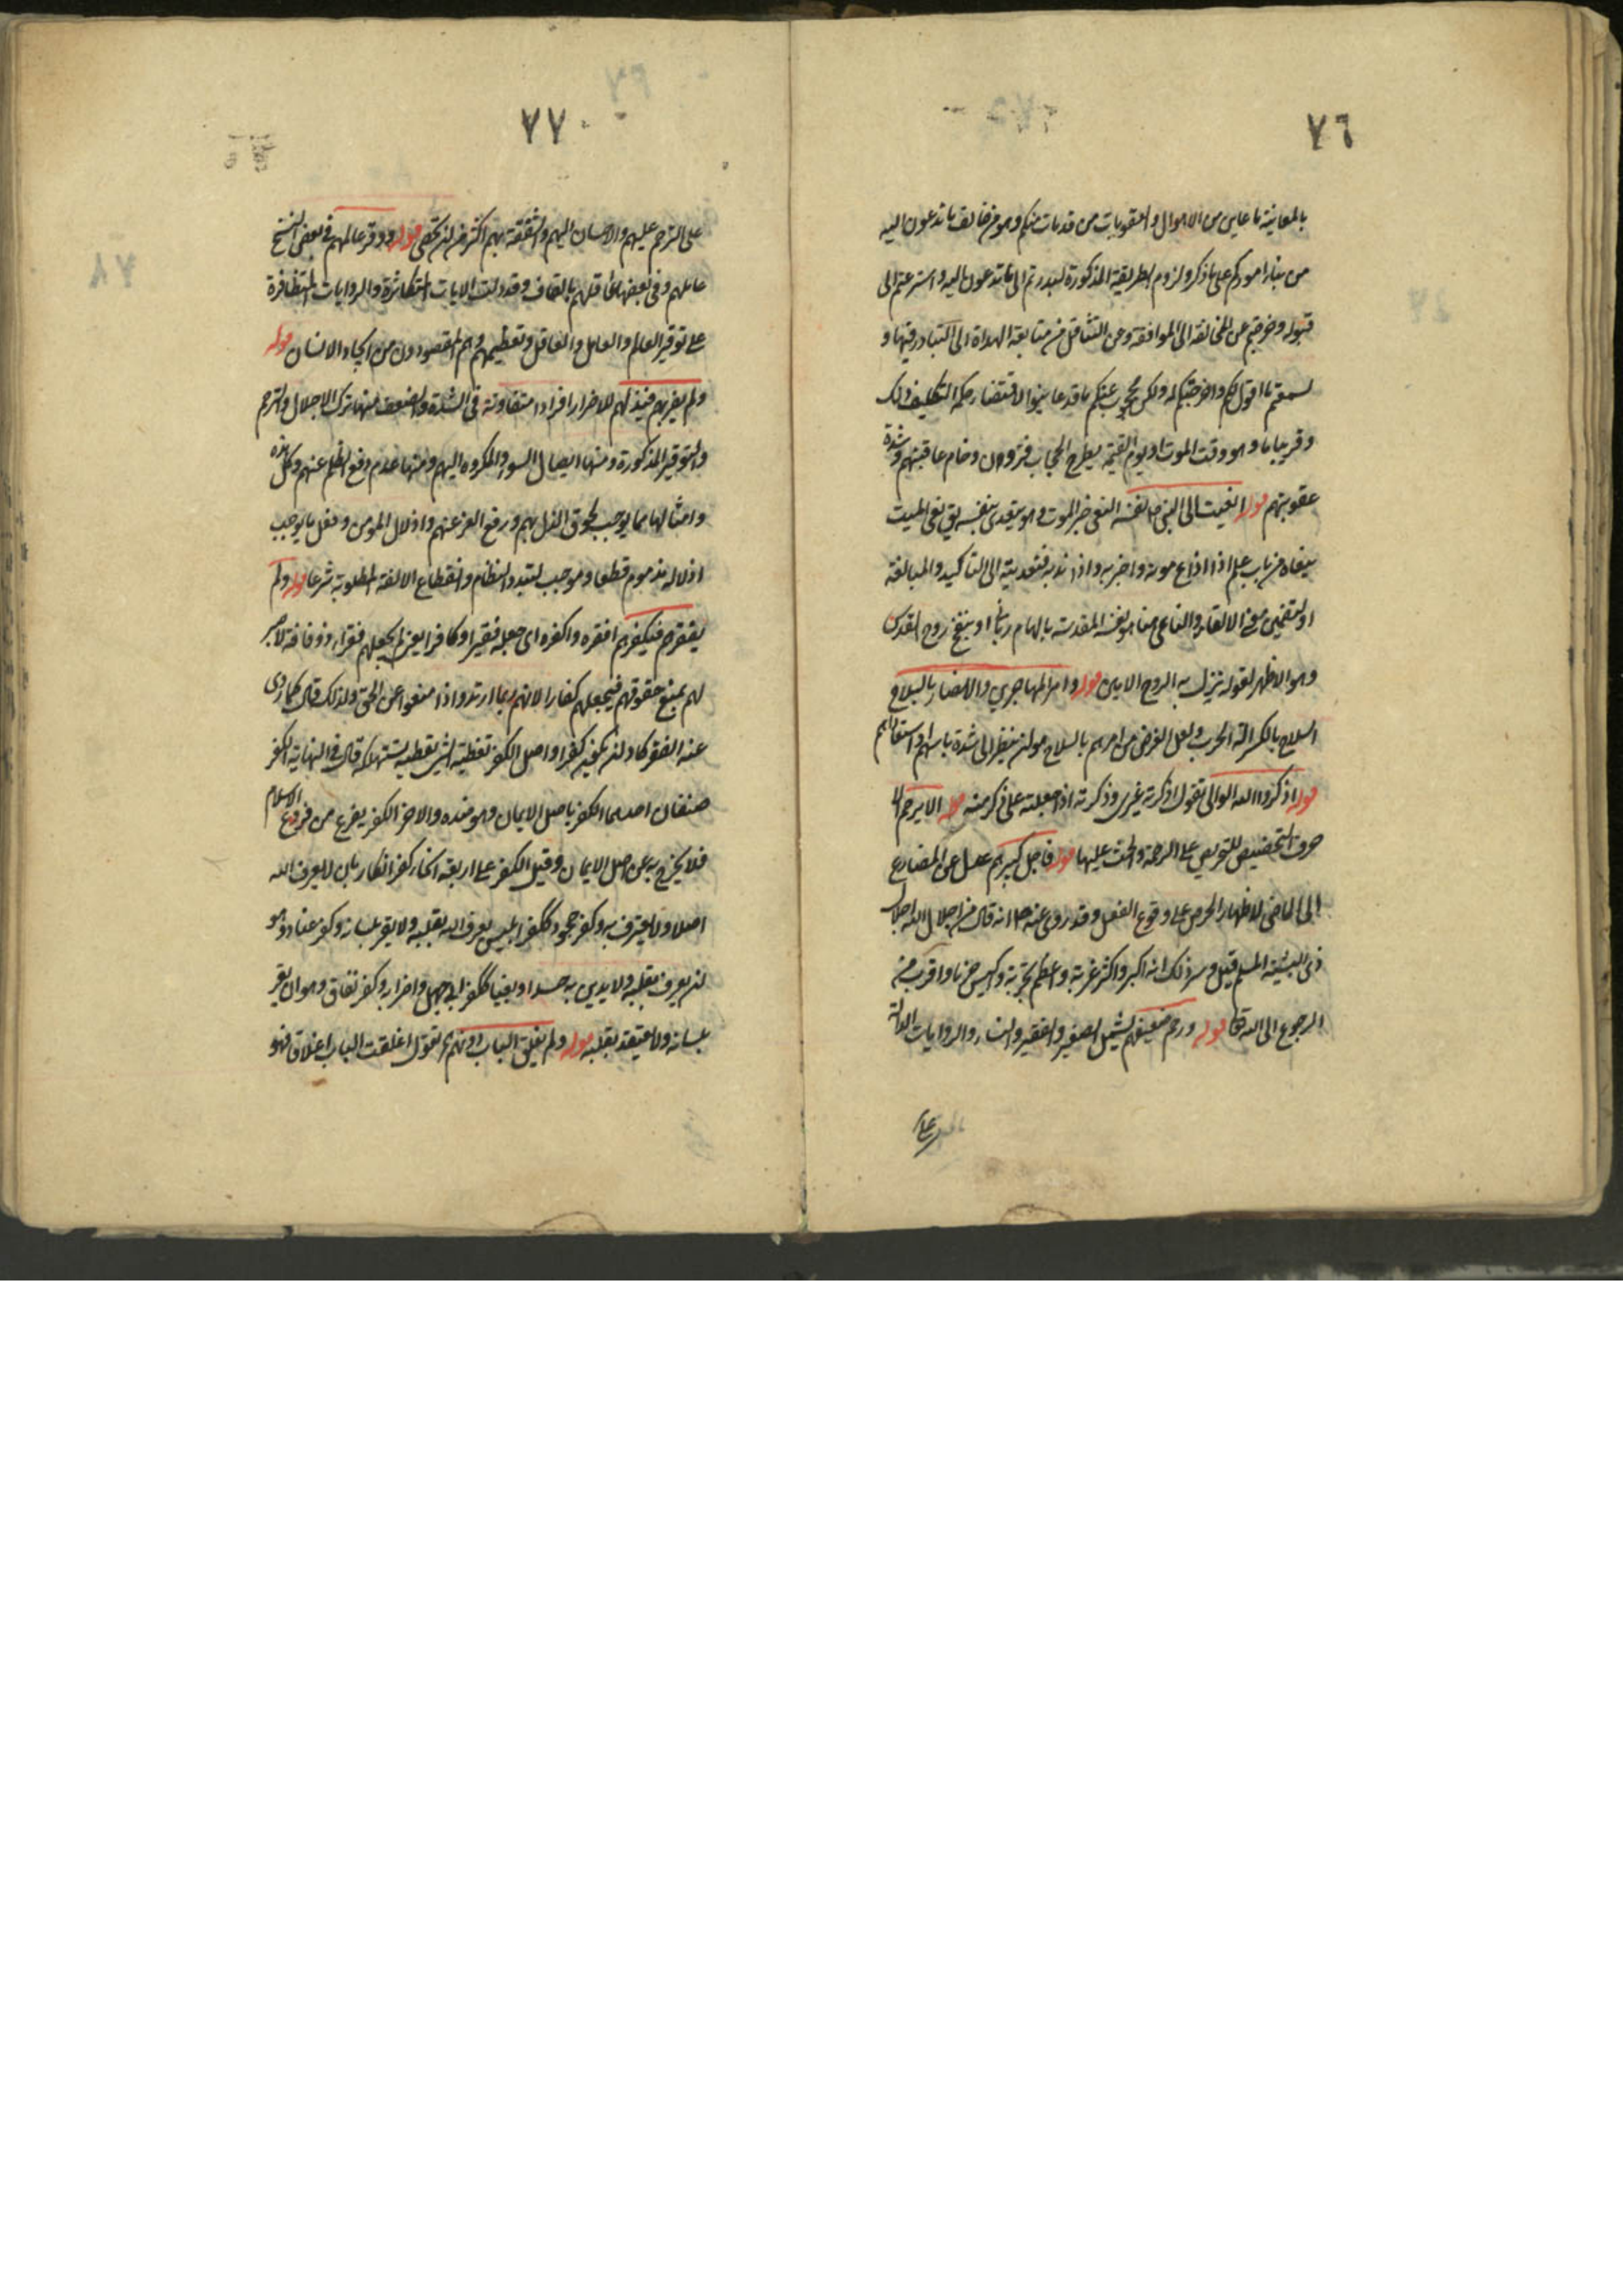 ٧٦
بالمعاينة ما عاين من الاهوال والعقوبات من قد مات منكم وهو من خالف ما تدعون اليه
من بناء اموركم على ما ذكر ولزوم الطريقة المذكورة لبدرتم الى ما تدعون اليه واسترعتم الى
قبوله وخرجتم عن المخالفة الى الموافقة ومن التثاقل من متابعة الهداة الى التبادر فيها و
لسمعتم ما اقول لكم واخرجتكم له ولكن محجوب عنكم ما قد عاينوا لاقتضاء حكمة التكليف ذلك
وقريبا ما وهو وقت الموت او يوم القيمة يطرح الحجاب فترون وخام عاقبتهم وشدة
عقوبتهم قوله نعيت الى النبي ص نفسه النعي خبر الموت وهو يتعدى بنفسه يق نعى الميت
ينعاه من باب علم اذا اذاع موته واخبر به واذا ندبه فتعديته الى للتأكيد والمبالغة
او لتضمين معنى الالقاء والناعي هنا هو نفسه المقدسة بالهام رباني او بنفخ روح القدس
وهو الاظهر لقوله نزل به الروح الامين قوله وامر المهاجرين والانصار بالسلاح
السلاح بالكسر الة الحرب ولعل الغرض من امرهم بالسلاح هو ان ينظر الى شدة باسهم واستقامتهم
قوله اذكروا الله الوالي تقول اذكرته غيري وذكرته اذا جعلته على ذكر منه قوله الا يرحم الا
حرف التحضيض للتحريص على الرحمة والحث عليها قوله فاجل كبيرهم عدل عن المضارع
الى الماضي لاظهار الحرص على وقوع الفعل وقد روى عنه ص انه قال من اجلال الله اجلال
ذي الشيبة المسلم قيل وسر ذلك انه اكبر واكثر غربة واعظم تجربة واكيس حزما واقرب من
الرجوع الى الله تعا قوله ورحم ضعيفهم يشمل الصغير والفقير والنساء والروايات الدالة
على
٧٧
على الترحم عليهم والاحسان اليهم والشفقة بهم اكثر من ان تحصى قوله ووقر عالمهم في بعض النسخ
عاملهم وفي بعضها عاقلهم بالقاف وقد دلت الايات المتكاثرة والروايات المتظافرة
على توقير العالم والعامل والعاقل وتعظيمهم وهم المقصودون من ايجاد الانسان قوله
ولم يضربهم فيذلهم للاضرار افراد متفاوتة في الشدة والضعف منها ترك الاجلال والترحم
والتوقير المذكورة ومنها ايصال السوء والمكروه اليهم ومنها عدم دفع الظلم عنهم وكل هذه
وامثالها مما يوجب لحوق الذل بهم ورفع العز عنهم واذلال المومن وفعل ما يوجب
اذلاله مذموم قطعا وموجب لتبدد النظام وانقطاع الالفة المطلوبة شرعا قوله ولم
يفقرهم فيكفرهم افقره واكفره اي جعله فقيرا وكافرا يعني لم يجعلهم فقراء وذو فاقة لا صبر
لهم بمنع حقوقهم فيجعلهم كفارا لانهم ربما ارتدوا اذا منعوا عن الحق ولذلك قال كما روى
عنه الفقر كاد ان يكون كفرا واصل الكفر تغطية الشيء تغطية تستهلكه قال في النهاية الكفر
صنفان احدهما الكفر باصل الايمان وهو ضده والاخر الكفر بفرع من فروع الاسلام
فلا يخرج به عن اصل الايمان وقيل الكفر على اربعة انحاء كفر انكار بان لا يعرف الله
اصلا ولا يعترف به وكفر جحود ككفر ابليس يعرف الله بقلبه ولا يقر بلسانه وكفر عناد وهو
ان يعرف بقلبه ولا يدين به حسدا وبغيا ككفر ابي جهل واضرابه وكفر نفاق وهو ان يقر
بلسانه ولا يعتقد بقلبه قوله ولم يغلق الباب دونهم تقول اغلقت الباب اغلاقا فهو